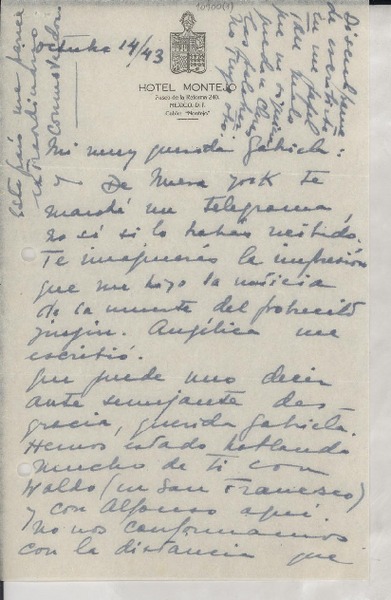 octubre 14/43
HOTEL MONTEJO
Paseo de la Reforma 240.
MEXICO, D. F.
Cables: "Montejo"
Mi muy querida Gabriela:
y De Nueva York te
mandé un telegrama
no sé si lo habrás recibido.
Te imaginarás la impresión
que me hizo la noticia
de la muerte del pobrecito
Yinyin. Angélica me
escribió.
Que puede uno decir
ante semejante des-
gracia, querida Gabriela.
Hemos estado hablando
mucho de ti con
Waldo (en San Francisco)
y con Alfonso aquí.
No nos conformamos
con la distancia que
Este país me parece
extraordinario
Conmovedor.
Disculpame
de escribirte
en un papel
tan
que ni siquiera
no tengo otro